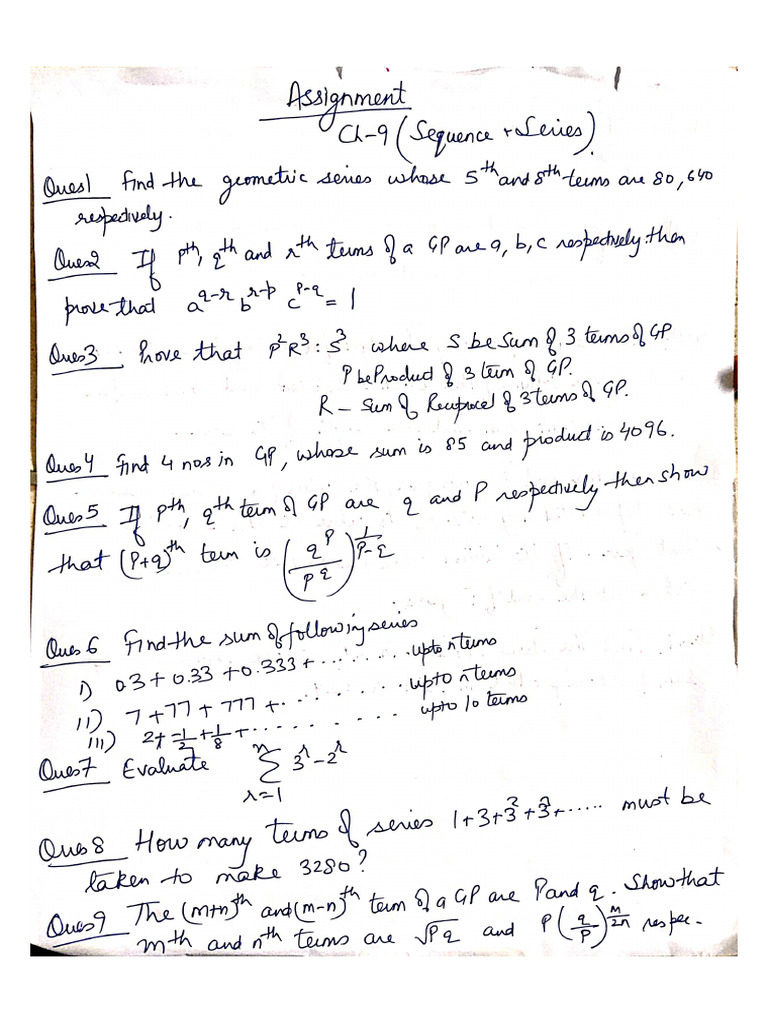 Assignment
Ch-9 (Sequence + Series).
Ques1 Find the geometric series whose 5th and 8th terms are 80, 640
respectively.
Ques2 If pth, qth and rth terms of a GP are a, b, c respectively then
prove that a^(q-r) b^(r-p) c^(p-q) = 1
Ques3 : Prove that P²R³ : S³ where S be Sum of 3 terms of GP
P be Product of 3 term of GP.
R - Sum of Reciprocal of 3 terms of GP.
Ques4 Find 4 nos in GP, whose sum is 85 and product is 4096.
Ques5 If pth, qth term of GP are q and P respectively then show
that (P+q)th term is (q^P / P^q)^(1/(P-q))
Ques6 Find the sum of following series
i) 0.3 + 0.33 + 0.333 + ......... upto n terms
ii) 7 + 77 + 777 + ......... upto n terms
iii) 2 + 1/2 + 1/8 + ......... upto 10 terms
Ques7 Evaluate Σ_(r=1)^n 3^r - 2^r
Ques8 How many terms of series 1 + 3 + 3² + 3³ + ..... must be
taken to make 3280?
Ques9 The (m+n)th and (m-n)th term of a GP are P and q. Show that
mth and nth terms are √Pq and P(q/P)^(m/2n) respec.